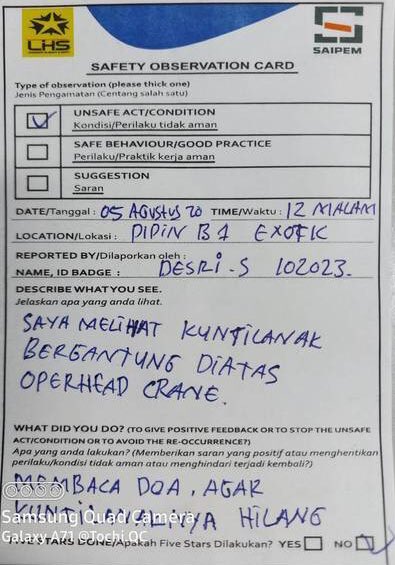 LHS
SAIPEM
SAFETY OBSERVATION CARD
Type of observation (please thick one)
Jenis Pengamatan (Centang salah satu)
UNSAFE ACT/CONDITION
Kondisi/Perilaku tidak aman
SAFE BEHAVIOUR/GOOD PRACTICE
Perilaku/Praktik kerja aman
SUGGESTION
Saran
DATE/Tanggal : 05 AGUSTUS 20 TIME/Waktu : 12 MALAM
LOCATION/Lokasi : PIPIN B1 EXOTIC
REPORTED BY/Dilaporkan oleh :
NAME, ID BADGE : DESRI.S 102023.
DESCRIBE WHAT YOU SEE.
Jelaskan apa yang anda lihat.
SAYA MELIHAT KUNTILANAK
BERGANTUNG DIATAS
OPERHEAD CRANE.
WHAT DID YOU DO? (TO GIVE POSITIVE FEEDBACK OR TO STOP THE UNSAFE
ACT/CONDITION OR TO AVOID THE RE-OCCURRENCE?)
Apa yang anda lakukan? (Memberikan saran yang positif atau menghentikan
perilaku/kondisi tidak aman atau menghindari terjadi kembali?)
MEMBACA DOA, AGAR
KUNTILANAKNYA HILANG
Samsung Quad Camera
Galaxy A71 @Tochi.OC
FIVE STARS DONE/Apakah Five Stars Dilakukan? YES NO